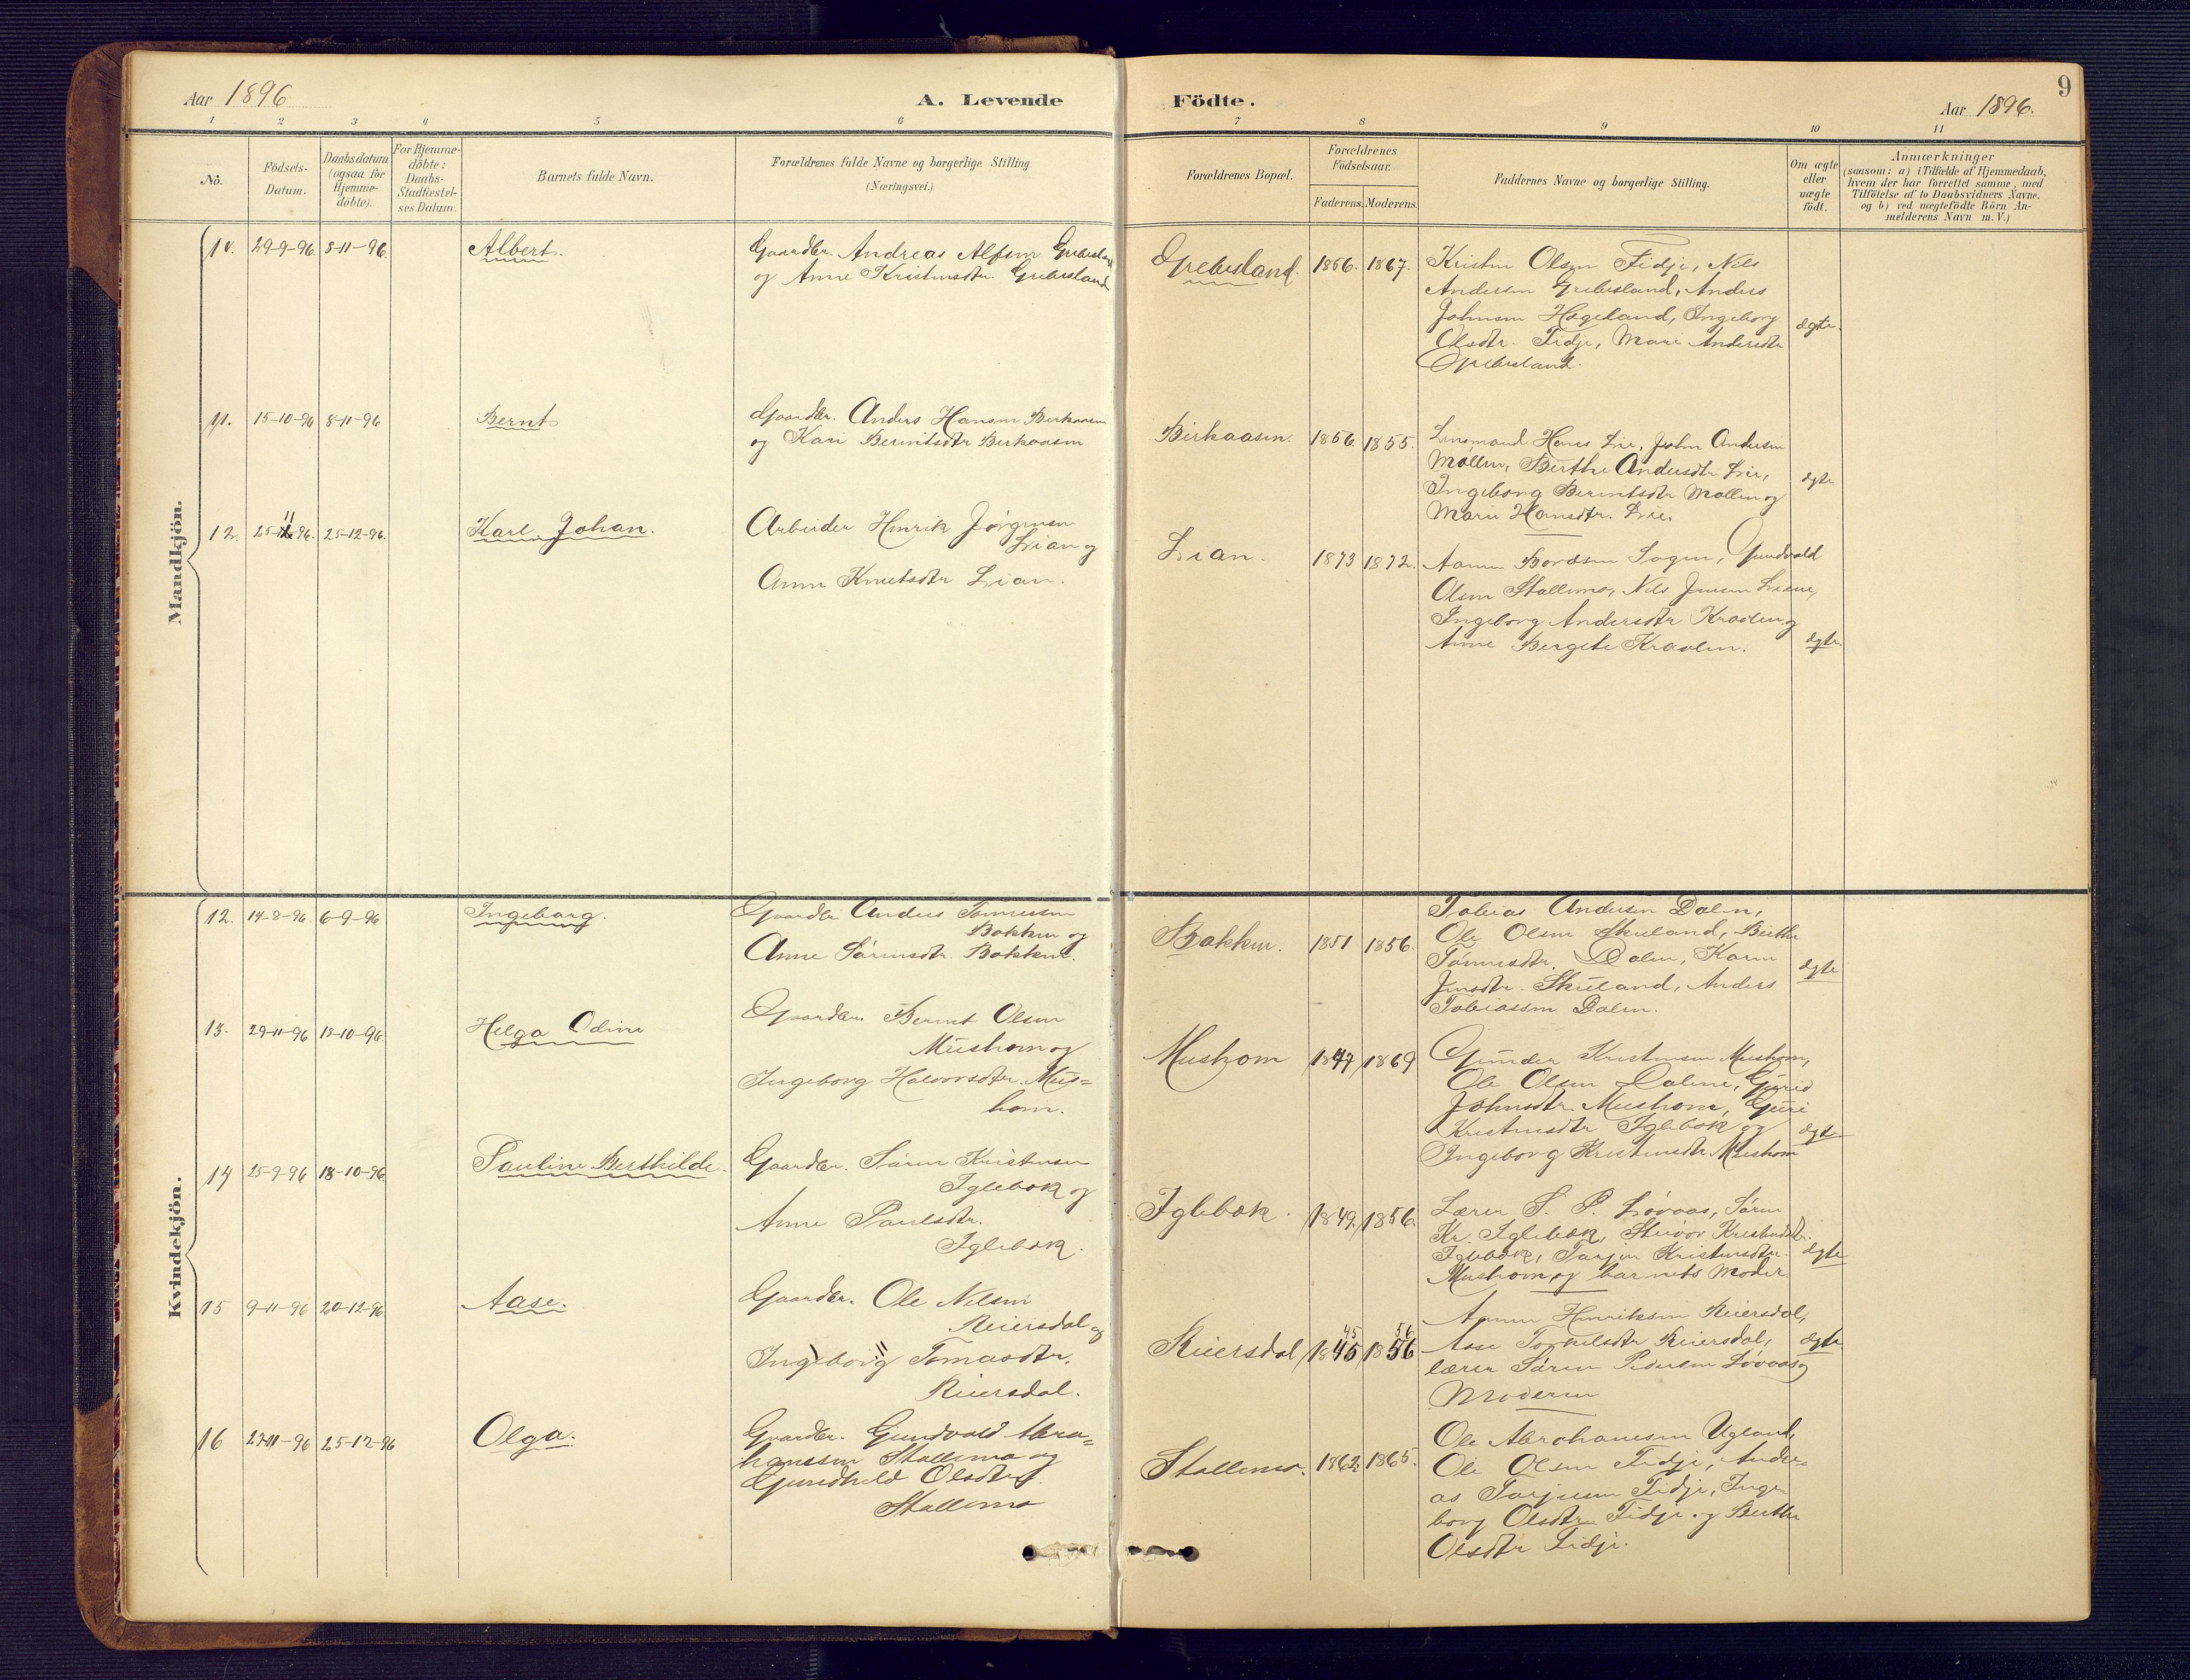 9
Aar 1896
A. Levende Födte.
Aar 1896.
1 2 3 4 5 6 7 8 9 10 11
No.
Födsels-
Datum.
Daabsdatum
(ogsaa for
Hjemme-
döbte).
For Hjemme-
döbte:
Daabs-
Stadfæstel-
ses Datum.
Barnets fulde Navn.
Forældrenes fulde Navne og borgerlige Stilling.
(Næringsvei.)
Forældrenes Bopæl.
Forældrenes
Födselsaar.
Faderens. Moderens.
Faddernes Navne og borgerlige Stilling.
Om ægte
eller
uægte
födt.
Anmærkninger
(saasom: a) i Tilfælde af Hjemmedaab,
hvem der har forrettet samme, med
Tilföielse af to Daabsvidners Navne,
og b) ved uægtefödte Börn An-
melderens Navn m. V.)
Mandkjön.
10. 29-9-96. 8-11-96. Albert.
Gaardbr. Andreas Alfsen
og Anne Kristensdtr. Grebesland
Grebesland. 1856. 1867.
Kristen Olsen Fidje, Nils
Andersen Grebesland, Anders
Johnsen Hageland, Ingeborg
Olsdtr. Fidje, Mari Andersdtr
Grebesland.
ægte.
11. 15-10-96 8-11-96 Bernt
Gaardbr. Anders Hansen Birkaasen
og Kari Berntsdtr Birkaasen
Birkaasen. 1856. 1855.
Lensmand Hans Lie, John Andersen
Möllen, Berthe Andersdtr. Lie,
Ingeborg Berntsdtr Möllen og
Marie Hansdtr. Lie.
ægte
12. 25-11-96. 25-12-96. Karl Johan.
Arbeider Henrik Jörgensen
Lian og
Anne Knutsdtr Lian.
Lian. 1873 1872.
Aanen Bordsen Sogen, Gundvald
Olsen Stallemo, Nils Jensen
Ingeborg Andersdtr Kraalen og
Anne Bergete Kraalen.
ægte.
Kvindekjön.
12. 14-8-96 6-9-96 Ingeborg.
Gaardbr. Anders Tönnessen
Bakken og
Anne Sörensdtr. Bakken.
Bakken. 1851 1856.
Tobias Andersen Dalen,
Ole Olsen Skueland, Berthe
Tönnesdtr. Dalen, Karen
Jensdtr. Skueland, Anders
Tobiassen Dalen.
ægte
13. 29-11-96 18-10-96. Helga Odine
Gaardbr. Bernt Olsen
Mushom og
Ingeborg Halvorsdtr. Mus=
hom.
Mushom 1847 1869
Gunder Kristensen Mushom,
Ole Olsen Dalene, Gurid
Johnsdtr. Mushom, Guri
Kristensdtr Iglebæk og
Ingeborg Kristensdtr. Mushom
ægte
14 25-9-96 18-10-96 Pauline Berthilde.
Gaardbr. Sören Kristensen
Iglebæk og
Anne Paulsdtr.
Iglebæk.
Iglebæk. 1849. 1856.
Lærer S. P. Lövaas, Sören
Kr. Iglebæk, Steivor Kristensdtr.
Iglebæk, Tarjer Kristensdtr.
Mushom og barnets Moder.
ægte
15 9-11-96 20-12-96 Aase.
Gaardbr. Ole Nilsen
Reiersdal og
Ingeborg Tomasdtr.
Reiersdal.
Reiersdal 1845 1856
45 56
Aanen Henriksen Reiersdal,
Aase Torkelsdtr Reiersdal,
lærer Sören Pedersen Lövaas og
Moderen
ægte
16 27-11-96 25-12-96 Olga.
Gaardbr. Gundvald Abra=
hamsen Stallemo og
Gundhild Olsdtr.
Stallemo
Stallemo. 1862. 1865.
Ole Abrahamsen Ugland,
Ole Olsen Fidje, Andre=
as Tarjesen Fidje, Inge
borg Olsdtr Fidje og Berthe
Olsdtr Fidje.